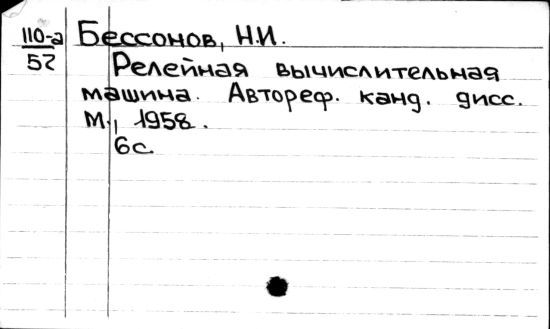 110-а
52
Бессонов, Н.И.
Релейная вычислительная
машина. Автореф. канд. дисс.
М., 1958.
6с.